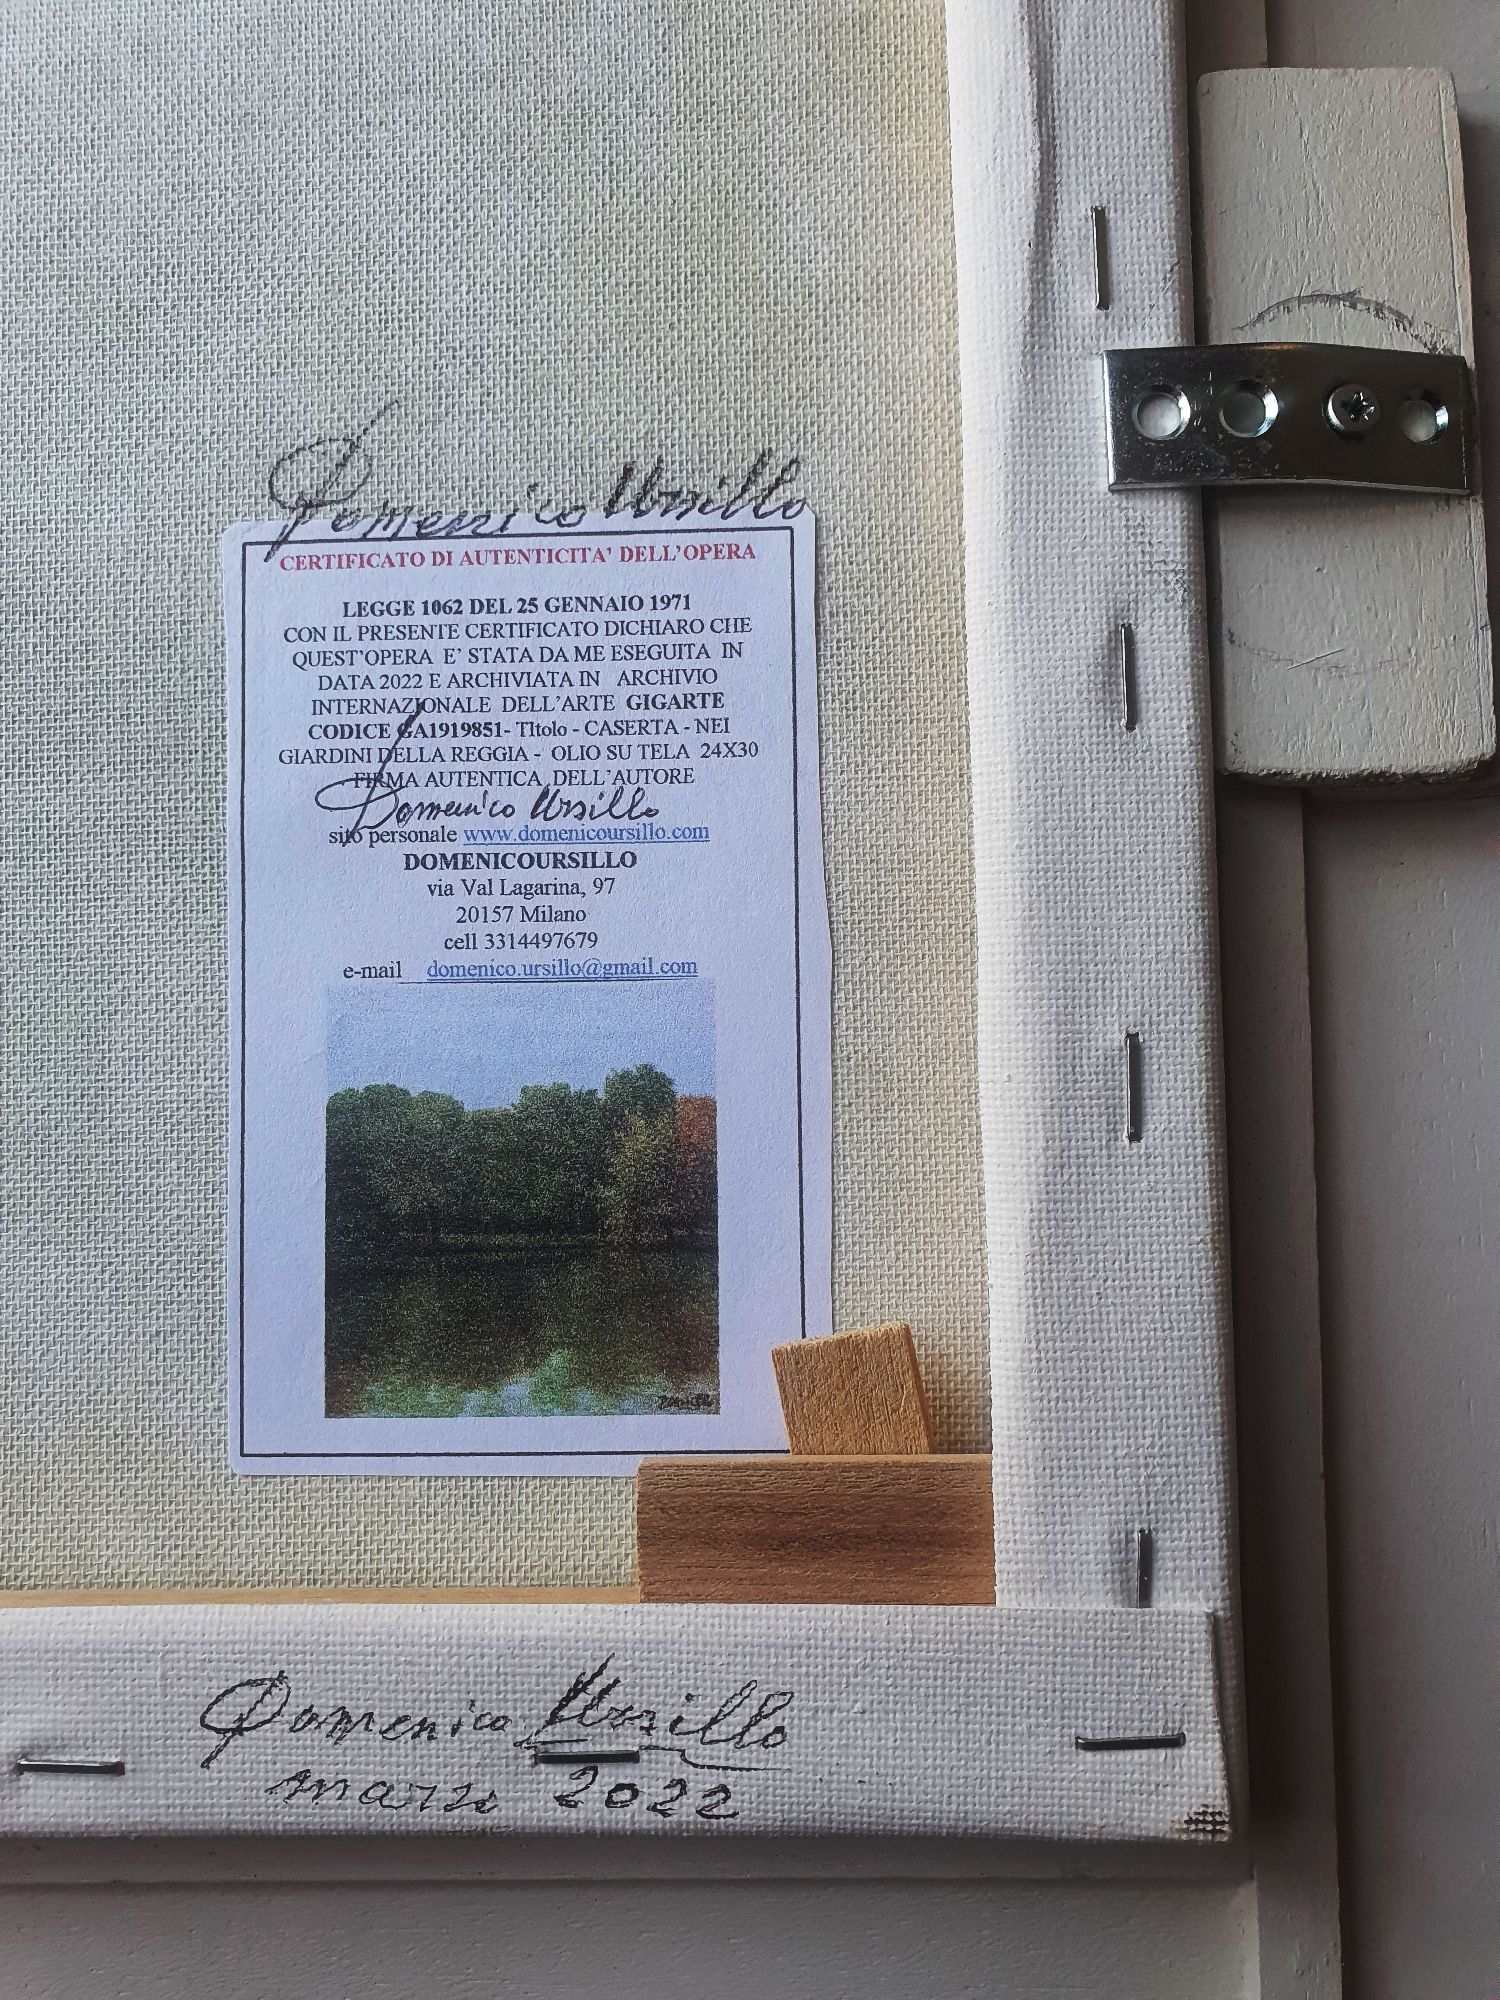 Domenico Ursillo
CERTIFICATO DI AUTENTICITA' DELL'OPERA
LEGGE 1062 DEL 25 GENNAIO 1971
CON IL PRESENTE CERTIFICATO DICHIARO CHE
QUEST'OPERA E' STATA DA ME ESEGUITA IN
DATA 2022 E ARCHIVIATA IN ARCHIVIO
INTERNAZIONALE DELL'ARTE GIGARTE
CODICE GA1919851- TItolo - CASERTA - NEI
GIARDINI DELLA REGGIA - OLIO SU TELA 24X30
FIRMA AUTENTICA DELL'AUTORE
Domenico Ursillo
sito personale www.domenicoursillo.com
DOMENICOURSILLO
via Val Lagarina, 97
20157 Milano
cell 3314497679
e-mail domenico.ursillo@gmail.com
Domenico Ursillo
marzo 2022